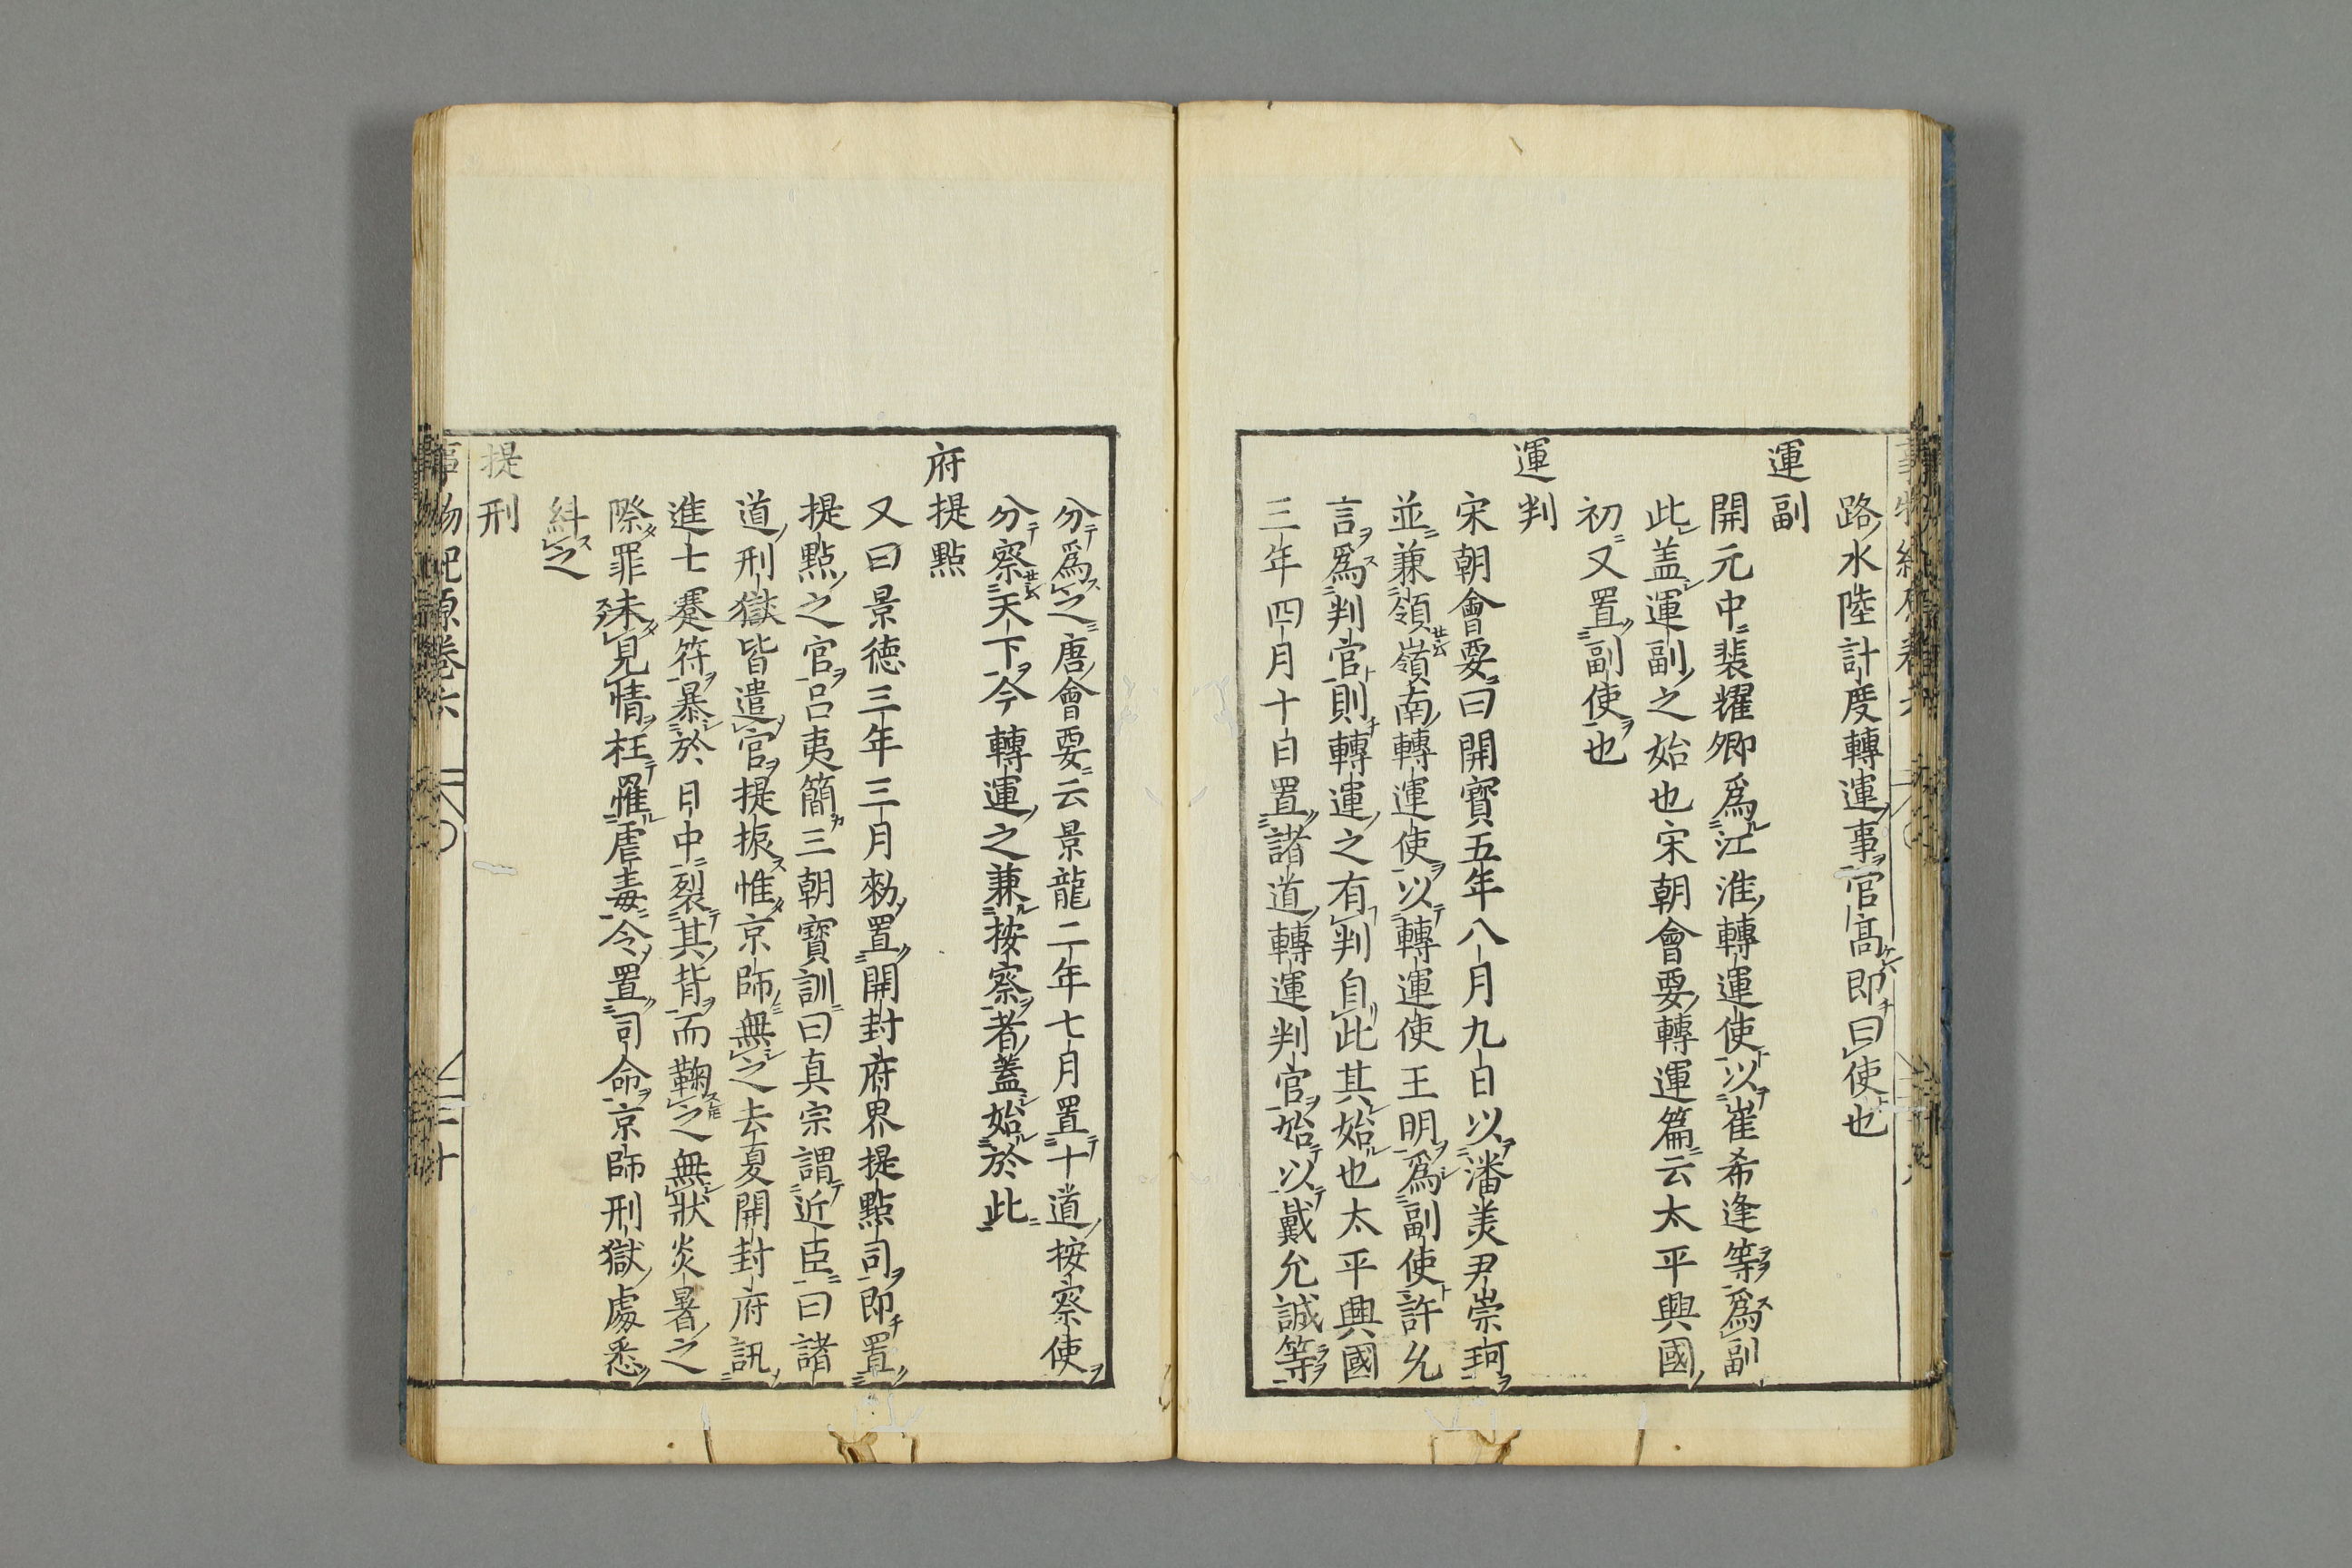 路水陸計度轉運事官髙即曰使也
運副
開元中裴耀卿爲江淮轉運使以崔希逢等爲副
此盖運副之始也宋朝會要轉運篇云太平興國
初又置副使也
運判
宋朝會要曰開寶五年八月九日以潘美尹崇珂
並兼領嶺南轉運使以轉運使王明爲副使許允
言爲判官則轉運之有判自此其始也太平興國
三年四月十日置諸道轉運判官始以戴允誠等
分爲之唐會要云景龍二年七月置十道按察使
分察天下今轉運之兼按察者蓋始於此
府提點
又曰景徳三年三月勑置開封府界提點司即置
提點之官呂夷簡三朝寶訓曰真宗謂近臣曰諸
道刑獄皆遣官提振惟京師無之去夏開封府訊
進士蹇符暴於日中裂其背而鞠之無狀炎暑之
際罪未見情枉罹虐毒令置司命京師刑獄處悉
糾之
提刑
事物紀原卷六
三十